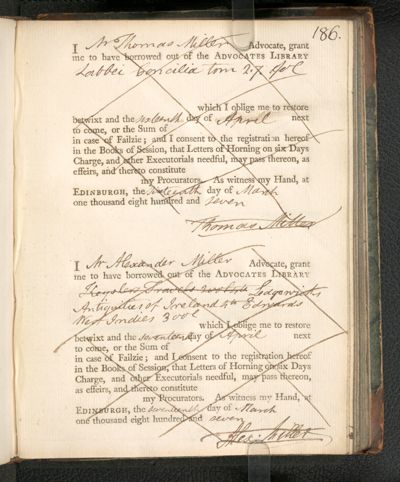 186.
I Mr Thomas Miller Advocate, grant
me to have borrowed out of the ADVOCATES LIBRARY
Labbei Concilia tom 2. 7
which I oblige me to restore
betwixt and the sixteenth day of April next
to come, or the Sum of
in case of Failzie; and I consent to the registration hereof
in the Books of Session, that Letters of Horning on six Days
Charge, and other Executorials needful, may pass thereon, as
effeirs, and thereto constitute
my Procurators. As witness my Hand, at
EDINBURGH, the sixteenth day of March
one thousand eight hundred and seven
Thomas Miller
I Mr Alexander Miller Advocate, grant
me to have borrowed out of the ADVOCATES LIBRARY
Keyslers Travels Ledgewichs
Antiquities of Ireland 4to Edwards
West Indies 3 vol
which I oblige me to restore
betwixt and the seventeenth day of April next
to come, or the Sum of
in case of Failzie; and I consent to the registration hereof
in the Books of Session, that Letters of Horning on six Days
Charge, and other Executorials needful, may pass thereon,
as effeirs, and thereto constitute
my Procurators. As witness my Hand, at
EDINBURGH, the seventeenth day of March
one thousand eight hundred and seven
Alexr Miller